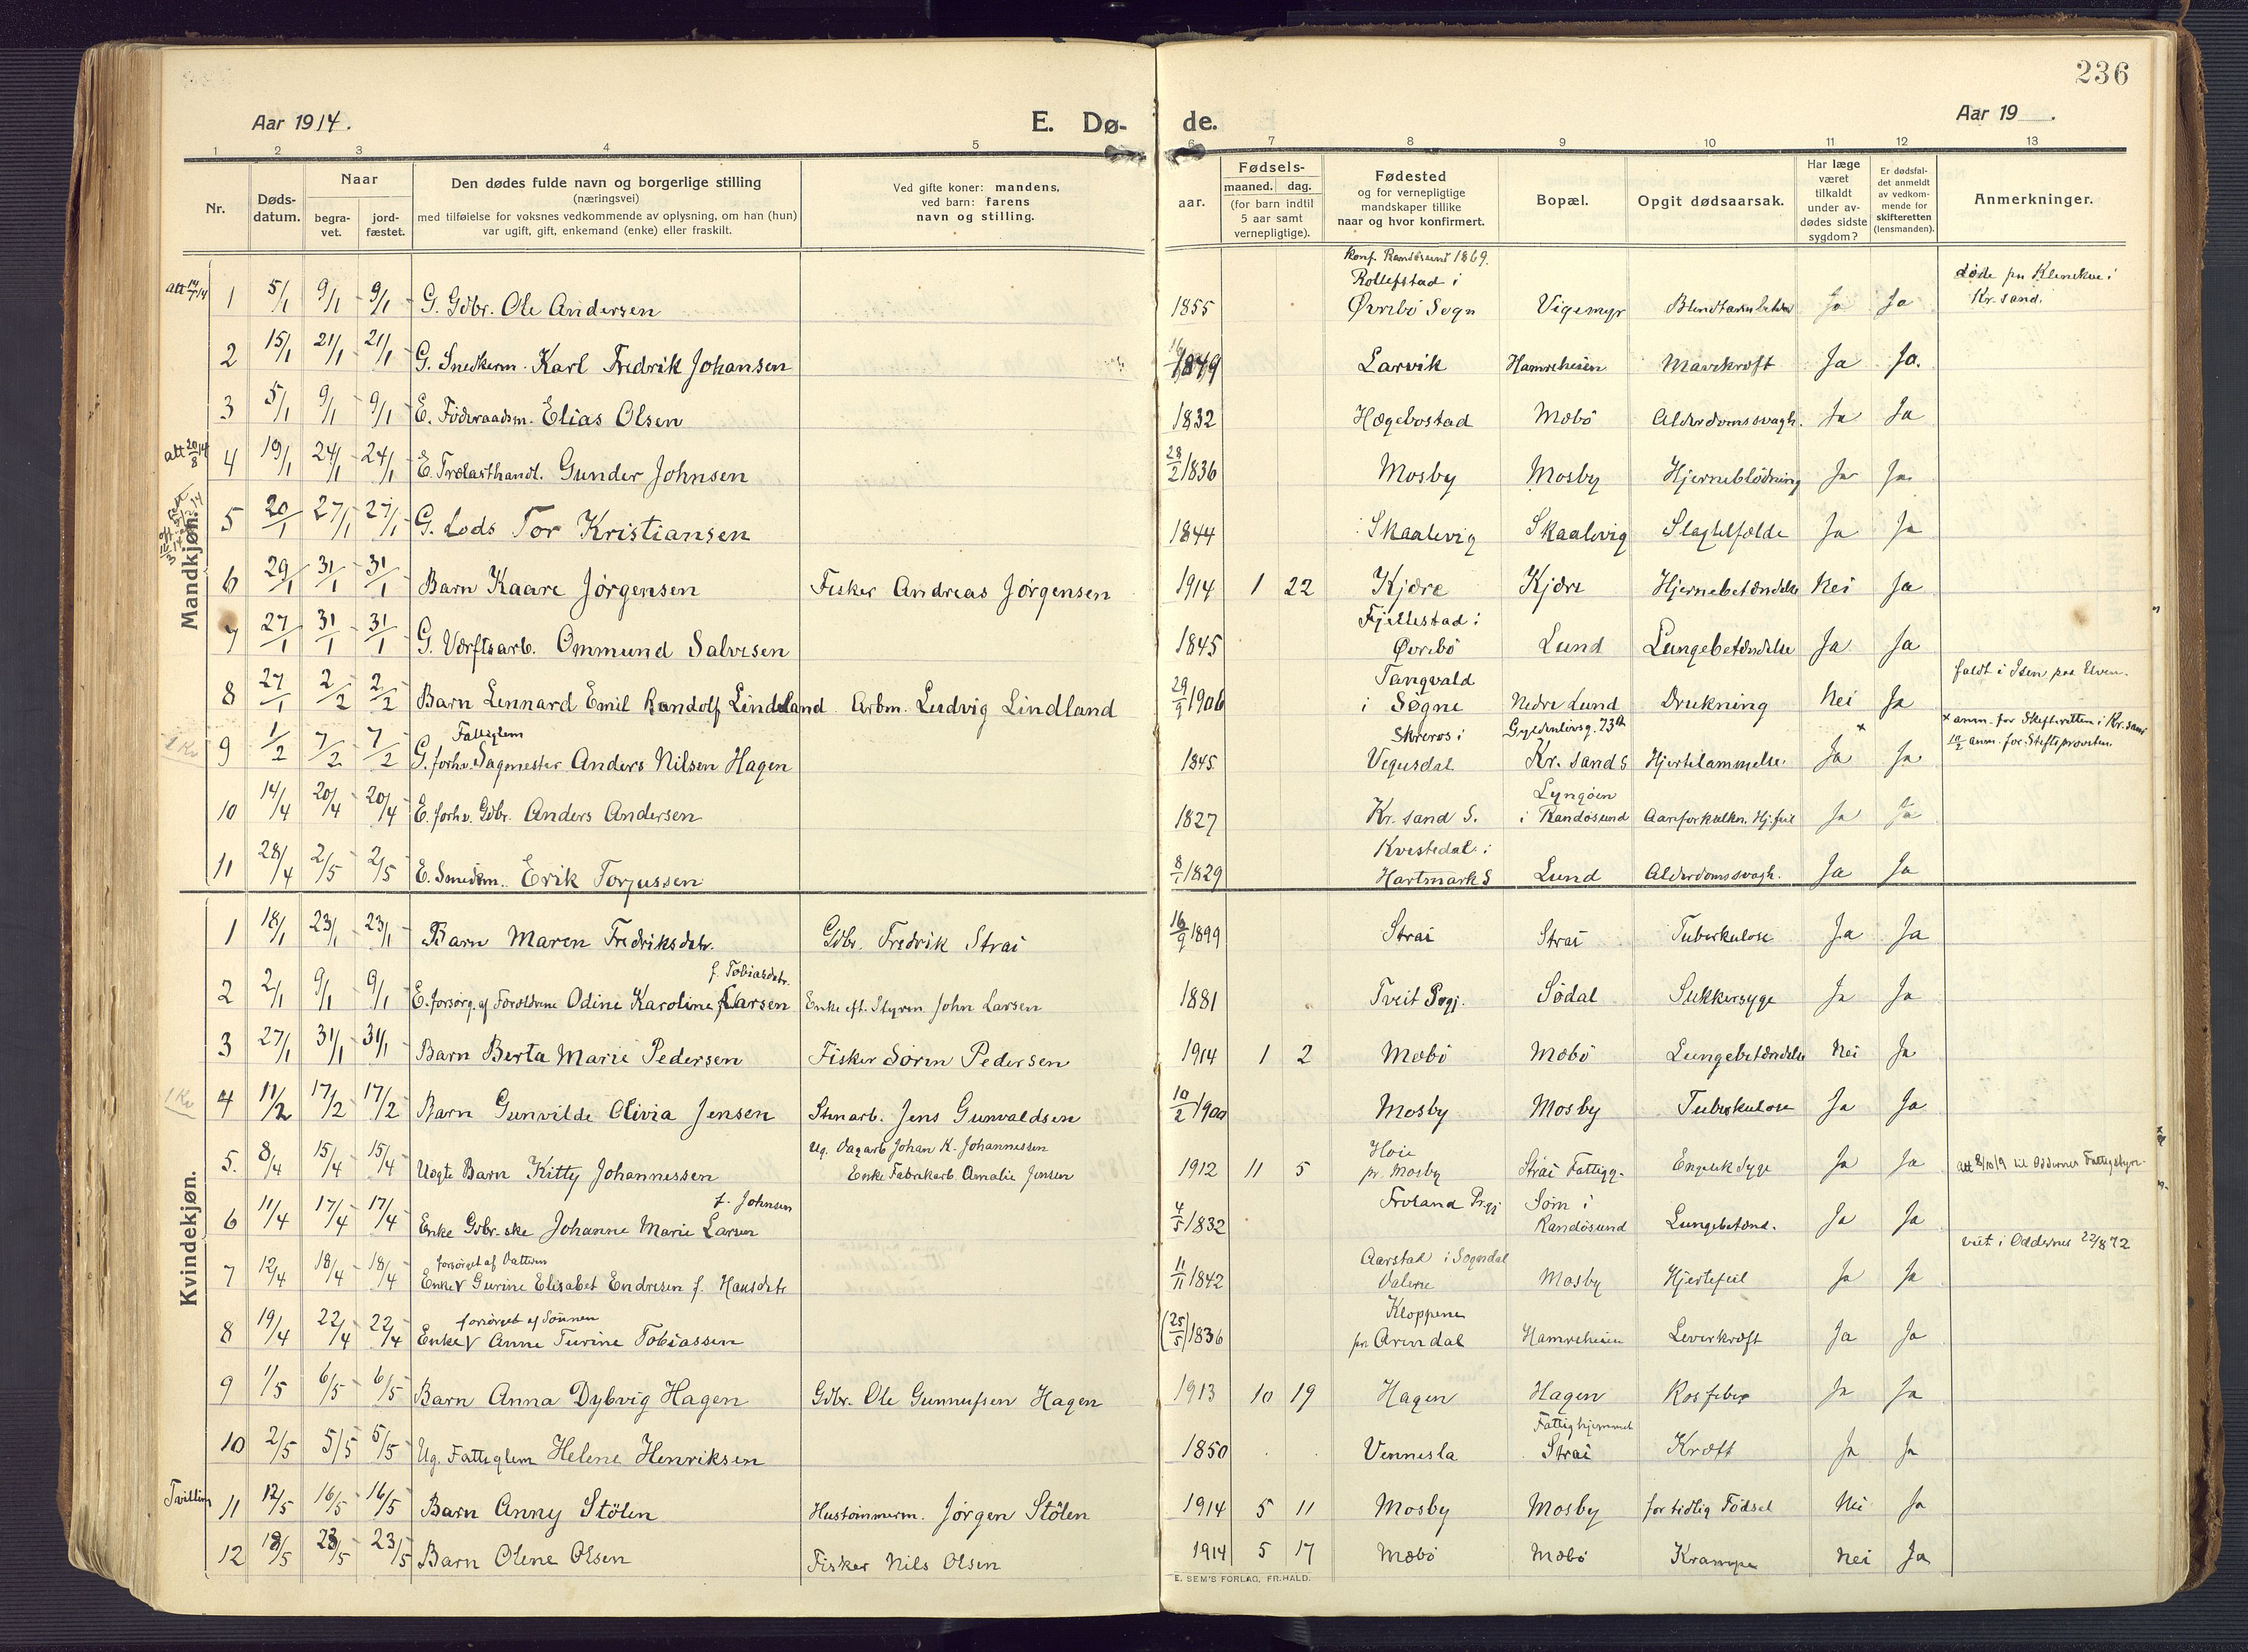 236
Aar 1914. E. Dø- de. Aar 19 .
1 2 3 4 5 6 7 8 9 10 11 12 13
Nr.
Døds-
datum.
Naar
begra-
vet.
jord-
fæstet.
Den dødes fulde navn og borgerlige stilling
(næringsvei)
med tilføielse for voksnes vedkommende av oplysning, om han (hun)
var ugift, gift, enkemand (enke) eller fraskilt.
Ved gifte koner: mandens,
ved barn: farens
navn og stilling.
Fødsels-
aar.
maaned. dag.
(for barn indtil
5 aar samt
vernepligtige).
Fødested
og for vernepligtige
mandskaper tillike
naar og hvor konfirmert.
Bopæl.
Opgit dødsaarsak.
Har læge
været
tilkaldt
under av-
dødes sidste
sygdom?
Er dødsfal-
det anmeldt
av vedkom-
mende for
skifteretten
(lensmanden).
Anmerkninger.
Mandkjøn.
konf. Randøsund 1869.
Rollefstad i
døde paa Kliniken i
1 5/1 9/1 9/1 G. Gdbr. Ole Andersen 1855 Øvrebö Sogn Vigemyr Ja Ja Kr.sand.
2 15/1 21/1 21/1 G. Snedkerm. Karl Fredrik Johansen 1849 Larvik Hamreheien Mavekræft Ja Ja.
3 5/1 9/1 9/1 E. Föderaadsm. Elias Olsen 1832 Hægebostad Mæbö Alderdomssvagh. Ja Ja
att 20/8 14
4 19/1 24/1 24/1 E. Trælasthandl. Gunder Johnsen 28/2 1836 Mosby Mosby Hjerneblödning Ja Ja
5 20/1 27/1 27/1 G. Lods Tor Kristiansen 1844 Skaalevig Skaalevig Slagtilfælde Ja Ja
6 29/1 31/1 31/1 Barn Kaare Jørgensen Fisker Andreas Jørgensen 1914 1 22 Kjære Kjære Hjernebetændelse Nei Ja
Fjellestad i
7 27/1 31/1 31/1 G. Værftsarb. Ommund Salvesen 1845 Øvrebö Lund Lungebetændelse Ja Ja
Tangvald
faldt i Isen paa Elven.
8 27/1 2/2 2/2 Barn Lennard Emil Randolf Lindland Arbm. Ludvig Lindland 29/9 1906 i Søgne Nedre Lund Drukning Nei Ja
Fattiglem
Skreros i
Gyldenløvesg. 73
x anm. for Skifteretten i Kr.sand
9 1/2 7/2 7/2 G. forhv. Sagmester Anders Nilsen Hagen 1845 Vegusdal Kr.sand S Hjertelammelse. Ja x Ja 10/2 anm. for Stiftsprovsten
Lyngöen
10 14/4 20/4 20/4 E. forhv. Gdbr. Anders Andersen 1827 Kr.sand S. i Randösund Aareforkalkn. Hj.feil Ja Ja
Kvestedal i
11 28/4 2/5 2/5 E. Smedm. Erik Torjussen 8/1 1829 Hartmark S Lund Alderdomssvagh. Ja Ja
Kvindekjøn.
1 18/1 23/1 23/1 Barn Maren Fredriksdatr. Gdbr. Fredrik Strai 16/9 1899 Strai Strai Tuberkulose Ja Ja
f. Tobiasdatr.
2 2/1 9/1 9/1 E. forsörg. af Forældrene Odine Karoline Larsen Enke eft. Styrm. John Larsen 1881 Tveit Prgj. Sødal Sukkersyge Ja Ja
3 27/1 31/1 31/1 Barn Berta Marie Pedersen Fisker Sören Pedersen 1914 1 2 Mæbö Mæbö Lungebetændelse Nei Ja
1 Kv
4 11/2 17/2 17/2 Barn Gunvilde Olivia Jensen Stenarb. Jens Gunvaldsen 10/2 1900 Mosby Mosby Tuberkulose Ja Ja
Ug. Dagarb Johan K. Johannessen
Höie
5. 8/4 15/4 15/4 Uegte Barn Kitty Johannessen Enke Fabrikarb. Amalie Jensen 1912 11 5 pr. Mosby Strai Fattigg. Engelsk Syge Ja Ja att 8/10 19 til Oddernes Fattigstyre
f. Johnsen
Froland Prgj Söm i
6 11/4 17/4 17/4 Enke Gdbr.ske Johanne Marie Larsen 4/5 1832 Randösund Lungebetænd. Ja Ja
viet i Oddernes 22/8 72
forsörget af Datteren
Aarstad i Sogndal
7 12/4 18/4 18/4 Enke V Gurine Elisabet Endresen f. Hansdatr 11/11 1842 Dalerne Mosby Hjertefeil Ja Ja
forsörget af Sönnen
Kloppene
8 19/4 22/4 22/4 Enke V Anne Turine Tobiassen (25/5) 1836 pr. Arendal Hamreheien Leverkræft Ja Ja
9 1/5 6/5 6/5 Barn Anna Dybvig Hagen Gdbr. Ole Gunnufsen Hagen 1913 10 19 Hagen Hagen Rosfeber Ja Ja
Fattighjemmet
10 2/5 5/5 5/5 Ug. Fattiglem Helene Henriksen 1850 Vennesla Strai Kræft Ja Ja
Tvilling
11 12/5 16/5 16/5 Barn Anny Stölen Hustömmerm. Jørgen Stölen 1914 5 11 Mosby Mosby for tidlig Födsel Nei Ja
12 18/5 23/5 23/5 Barn Olene Olsen Fisker Nils Olsen 1914 5 17 Mæbö Mæbö Krampe Nei Ja
E. SEM'S FORLAG, FR.HALD.